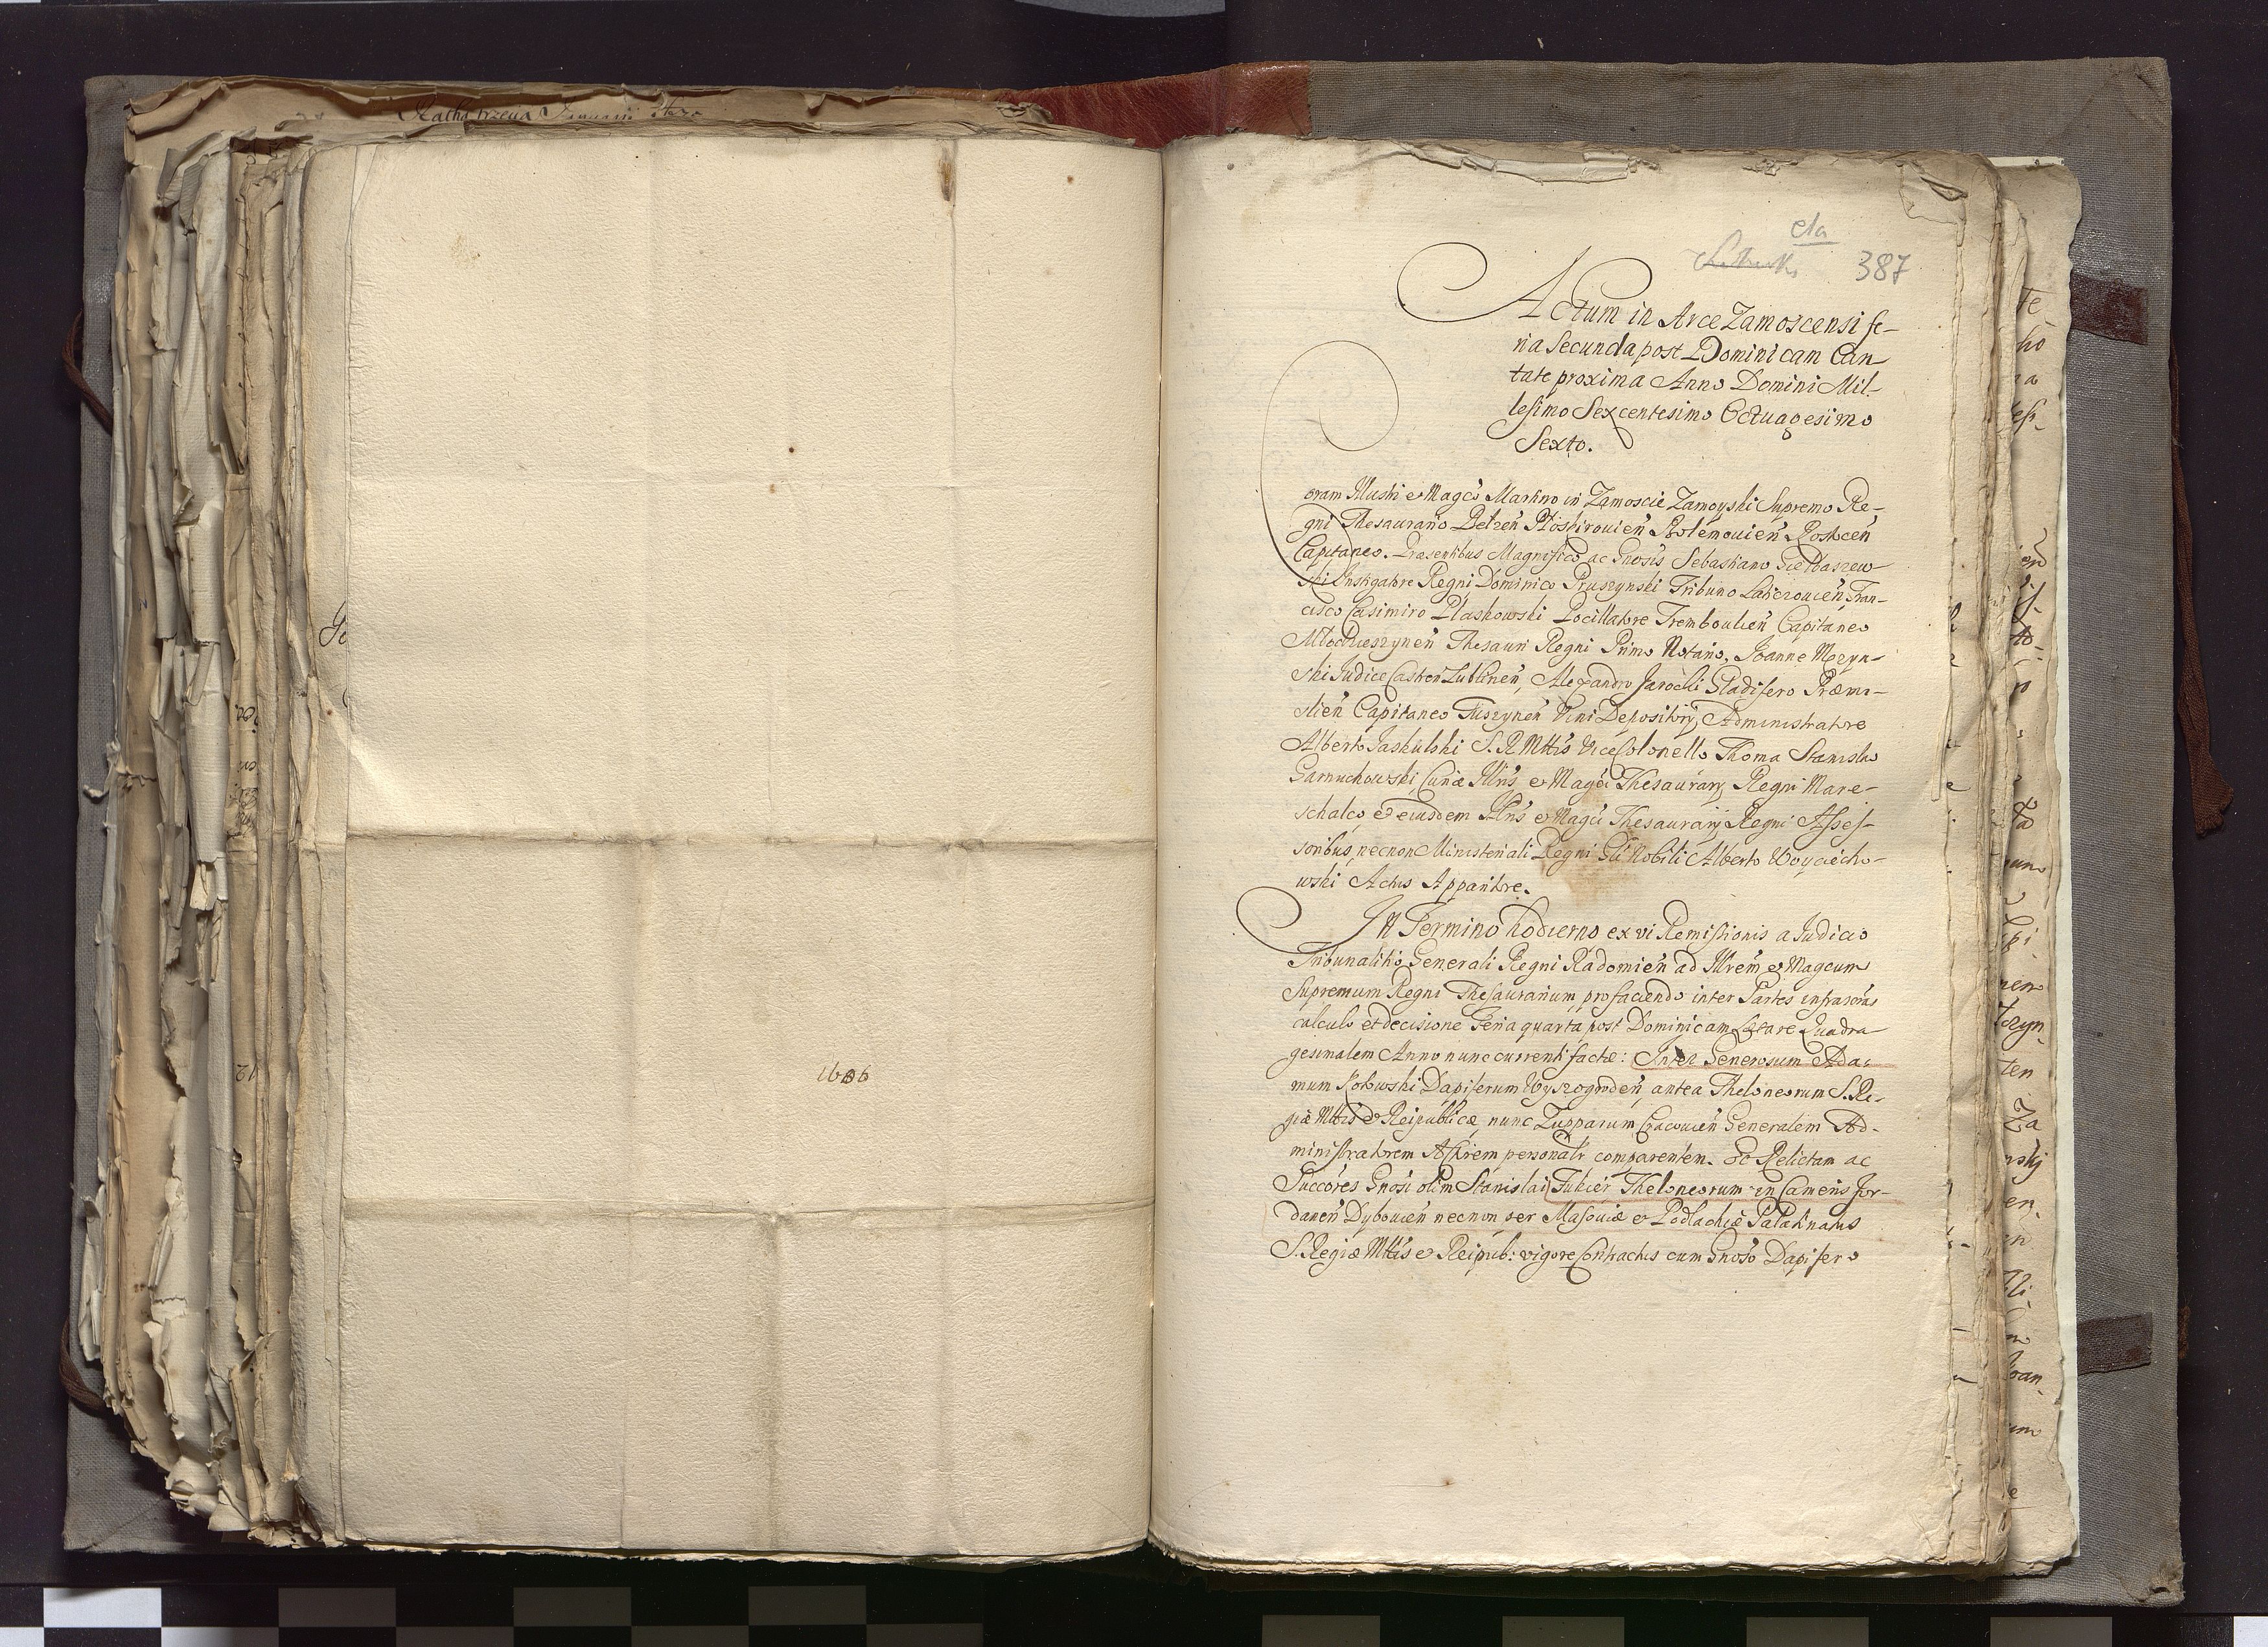 1686
cła
387
Actum in Arce Zamoscensi fe-
ria Secunda post Dominicam Can-
tate proxima Anno Domini Mil-
lesimo Sexcentesimo Octuagesimo
Sexto.
oram Illustri et Magco Martino in Zamoscie Zamoyski Supremo Re-
gni Thesaurario Belzen Płoskirovien Rostocen
Capitaneo. Præsentibus Magnifico ac Gnosis Sebastiano Giełdaszew
ski Instigatore Regni Dominico Pruszynski Tribuno Laticzovien, Fran-
cisco Casimiro Płaskowski Pocillatore Tremboulien Capitaneo
Młochieszynen Thesauri Regni Primo Notario, Joanne Mozyn-
ski Judice Castren Lublinen, Alexandro Jarocki Gladifero Præmi-
slien Capitaneo Tuszynen Vini Depositorij Administratore
Alberto Jaskulski S. R. Mttis Vice Colonello Thoma Stanislao
Garnuchowski, Curiæ Illris et Magci Thesaurarij Regni Mare-
schalco, et eiusdem Illris et Magci Thesaurarij Regni Asses-
soribus, necnon Ministeriali Regni Gli Nobili Alberto Woyciecho-
wski Actus Apparitore.
In Termino hodierno ex vi Remissionis a Judicio
Tribunalitio Generali Regni Radomien ad Illrem et Magcum
Supremum Regni Thesaurarium pro faciendo inter Partes infrascras
calculo et decisione Feria quarta post Dominicam Lætare Quadra
gesimalem Anno nunc currenti factæ: Inter Generosum Ada-
mum Kotowski Dapiferum Wyszogroden, antea Theloneorum S. Re-
giæ Mttis et Reipublicæ, nunc Zupparum Cracovien Generalem Ad-
ministratorem Actorem personalr comparentem. Et Relictam ac
Succores Gnosi olim Stanislai Tukier Theloneorum in Cameris Jor-
danen Dybovien necnon per Masoviæ et Podlachiæ Palatinatus
S. Regiæ Mttis et Reipub: vigore Contractus cum Gnoso Dapifero